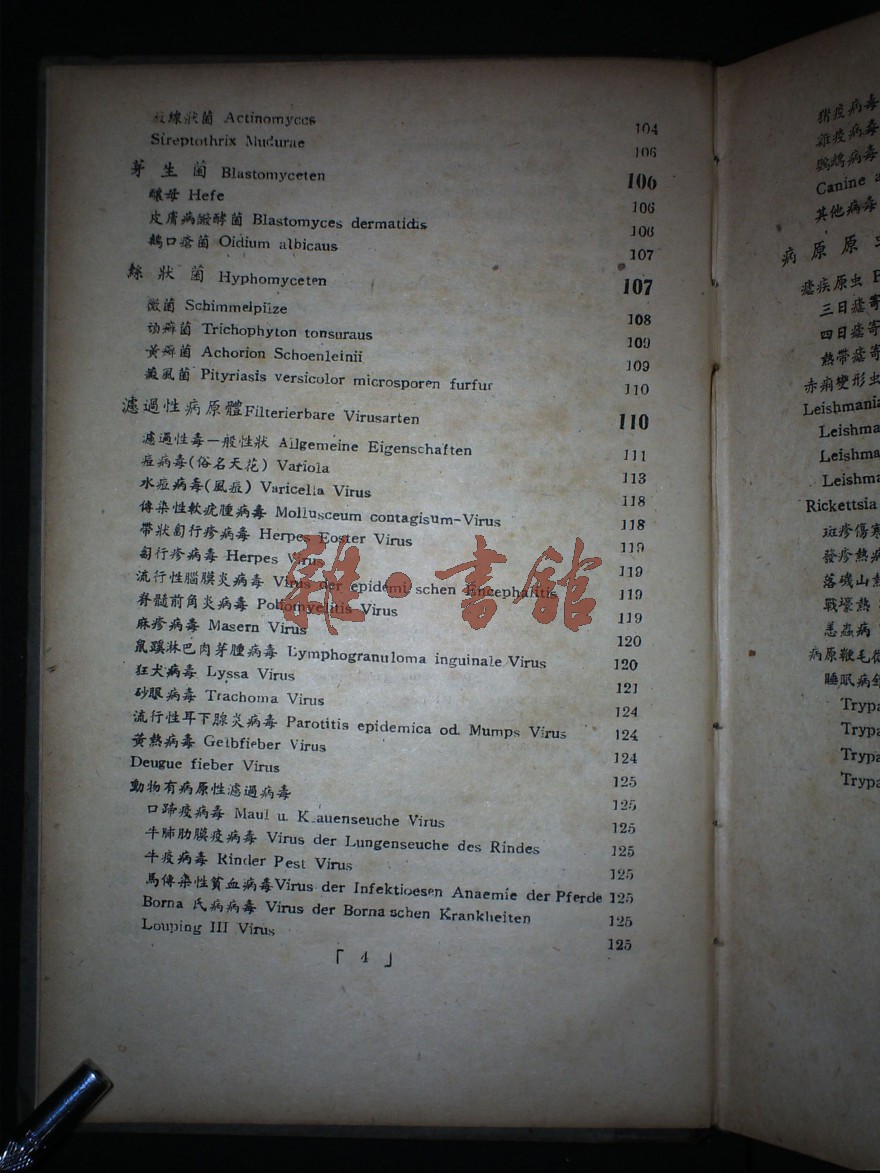 放線狀菌 Actinomyces 104
Streptothrix Mudurae 106
芽生菌 Blastomyceten 106
釀母 Hefe 106
皮膚病醱酵菌 Blastomyces dermatidis 106
鵝口瘡菌 Oidium albicaus 107
絲狀菌 Hyphomyceten 107
黴菌 Schimmelpilze 108
癬菌 Trichophyton tonsuraus 109
黃癬菌 Achorion Schoenleinii 109
澱風菌 Pityriasis versicolor microsporen furfur 110
濾過性病原體 Filterierbare Virusarten 110
濾過性毒一般性狀 Allgemeine Eigenschaften 111
痘病毒(俗名天花) Variola 113
水痘病毒(風痘) Varicella Virus 118
傳染性軟疣腫病毒 Mollusceum contagisum-Virus 118
帶狀匐行疹病毒 Herpes Eoster Virus 119
匐行疹病毒 Herpes Virus 119
流行性腦膜炎病毒 Virus der epidemi schen Encephalitis 119
脊髓前角炎病毒 Poliomyelitis Virus 119
麻疹病毒 Masern Virus 120
鼠蹊淋巴肉芽腫病毒 Lymphogranuloma inguinale Virus 120
狂犬病毒 Lyssa Virus 121
砂眼病毒 Trachoma Virus 124
流行性耳下腺炎病毒 Parotitis epidemica od. Mumps Virus 124
黃熱病毒 Gelbfieber Virus 124
Deugue fieber Virus 125
動物有病原性濾過病毒 125
口蹄疫病毒 Maul u. Klauenseuche Virus 125
牛肺肋膜疫病毒 Virus der Lungenseuche des Rindes 125
牛疫病毒 Rinder Pest Virus 125
馬傳染性貧血病毒 Virus der Infektioesen Anaemie der Pferde 125
Borna 氏病病毒 Virus der Borna schen Krankheiten 125
Louping III Virus 125
「 4 」
雜·書館
猪疫病毒
雞疫病毒
鸚鵡病毒
Canine
其他病毒
病原原
瘧疾原虫
三日瘧寄
四日瘧寄
熱帶瘧寄
赤痢變形虫
Leishmania
Leishma
Leishma
Leishma
Rickettsia
斑疹傷寒
發疹熱病
落磯山熱
戰壕熱
恙蟲病
病原鞭毛
睡眠病
Trypa
Trypa
Trypa
Trypa